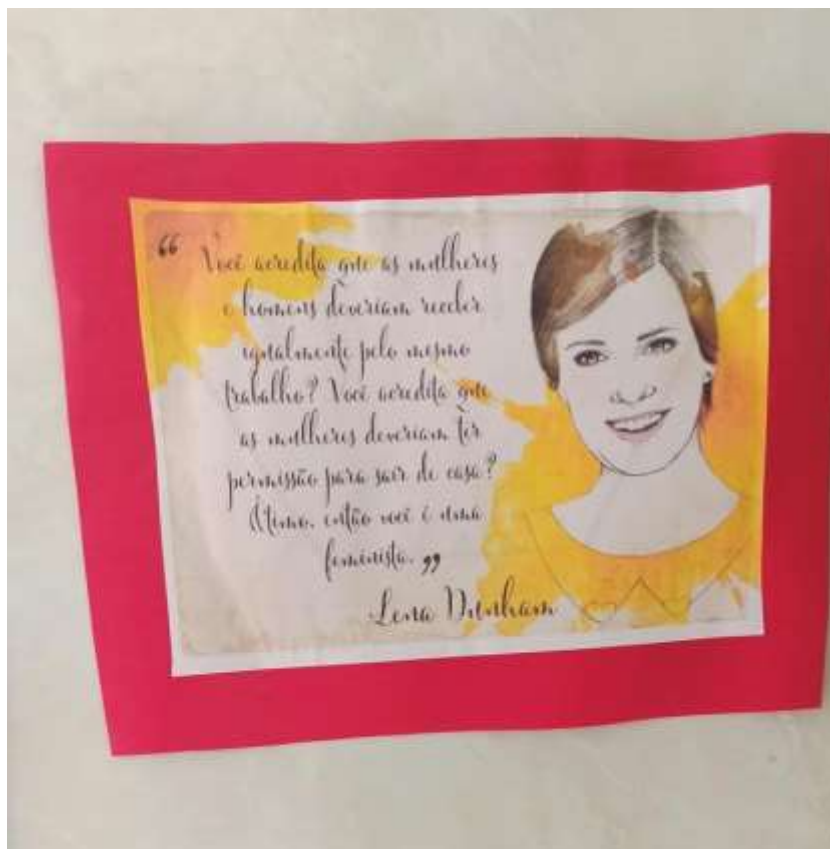 “ Você acredita que as mulheres
e homens deveriam receber
igualmente pelo mesmo
trabalho? Você acredita que
as mulheres deveriam ter
permissão para sair de casa?
Ótimo, então você é uma
feminista. ”
Lena Dunham